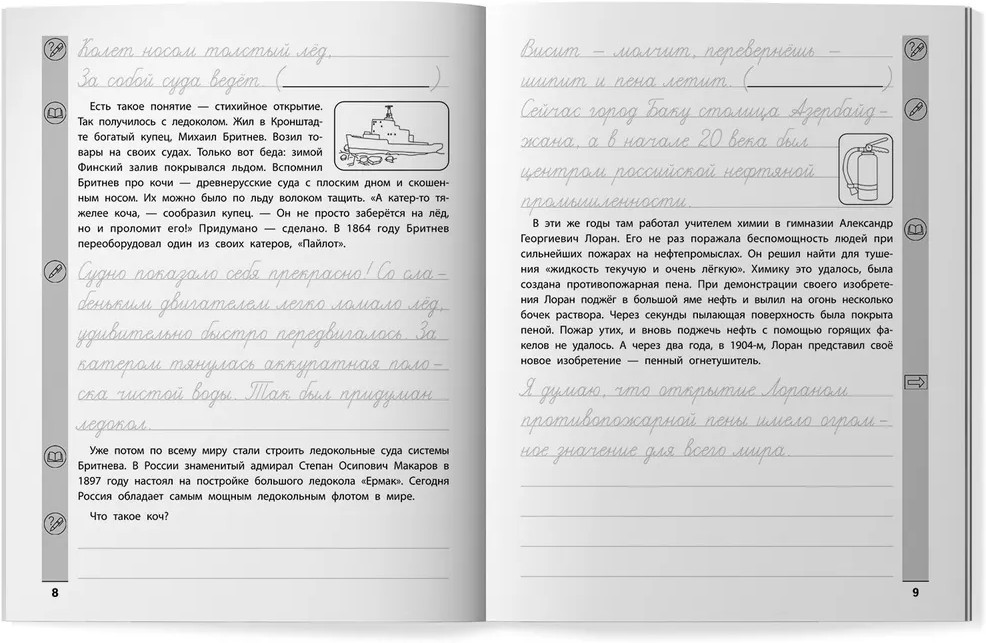 Колет носом толстый лёд,
За собой суда ведёт. (                    )
Есть такое понятие — стихийное открытие.
Так получилось с ледоколом. Жил в Кронштад-
те богатый купец, Михаил Бритнев. Возил то-
вары на своих судах. Только вот беда: зимой
Финский залив покрывался льдом. Вспомнил
Бритнев про кочи — древнерусские суда с плоским дном и скошен-
ным носом. Их можно было по льду волоком тащить. «А катер-то тя-
желее коча, — сообразил купец. — Он не просто заберётся на лёд,
но и проломит его!» Придумано — сделано. В 1864 году Бритнев
переоборудовал один из своих катеров, «Пайлот».
Судно показало себя прекрасно! Со сла-
беньким двигателем легко ломало лёд,
удивительно быстро передвигалось. За
катером тянулась аккуратная поло-
ска чистой воды. Так был придуман
ледокол.
Уже потом по всему миру стали строить ледокольные суда системы
Бритнева. В России знаменитый адмирал Степан Осипович Макаров в
1897 году настоял на постройке большого ледокола «Ермак». Сегодня
Россия обладает самым мощным ледокольным флотом в мире.
Что такое коч?
8
Висит – молчит, перевернёшь –
шипит и пена летит. (                    )
Сейчас город Баку столица Азербайд-
жана, а в начале 20 века был
центром российской нефтяной
промышленности.
В эти же годы там работал учителем химии в гимназии Александр
Георгиевич Лоран. Его не раз поражала беспомощность людей при
сильнейших пожарах на нефтепромыслах. Он решил найти для туше-
ния «жидкость текучую и очень лёгкую». Химику это удалось, была
создана противопожарная пена. При демонстрации своего изобрете-
ния Лоран поджёг в большой яме нефть и вылил на огонь несколько
бочек раствора. Через секунды пылающая поверхность была покрыта
пеной. Пожар утих, и вновь поджечь нефть с помощью горящих фа-
келов не удалось. А через два года, в 1904-м, Лоран представил своё
новое изобретение — пенный огнетушитель.
Я думаю, что открытие Лораном
противопожарной пены имело огром-
ное значение для всего мира.
9